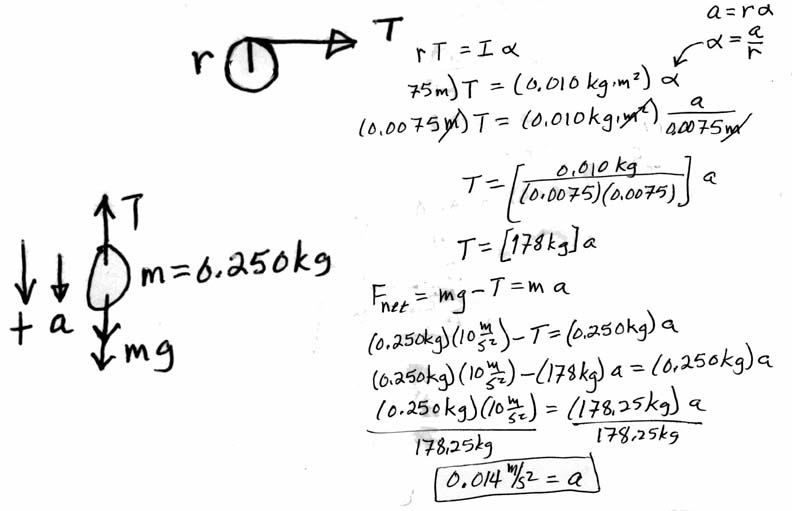 a = rα
α = a/r
T
r
rT = I α
75m) T = (0.010 kg·m²) α
(0.0075m) T = (0.010 kg·m²) a/0.0075m
T = [0.010 kg/(0.0075)(0.0075)] a
T = [178 kg] a
T
m = 0.250 kg
+ a
mg
Fnet = mg - T = m a
(0.250kg)(10 m/s²) - T = (0.250kg) a
(0.250kg)(10 m/s²) - (178 kg) a = (0.250 kg) a
(0.250 kg)(10 m/s²) = (178.25 kg) a
178.25 kg 178.25 kg
0.014 m/s² = a